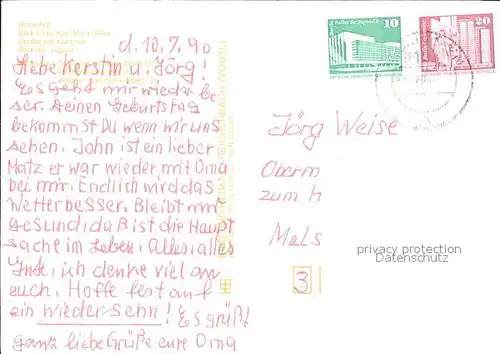 d. 10.7.90
Liebe Kerstin u. Jörg!
Es geht mir wieder bes
ser. Deinen Geburtstag
bekommst Du wenn wir uns
sehen. John ist ein lieber
Matz er war wieder mit Oma
bei mir. Endlich wird das
Wetter besser. Bleibt mir
gesund, daß ist die Haupt
sache im Leben. Alles, alles
Gute, ich denke viel an
euch. Hoffe fest auf
ein Wiedersehn! Es grüßt
ganz liebe Grüße eure Oma
10
20
Jörg Weise
Oberm
zum H
Mels
privacy protection
Datenschutz
3